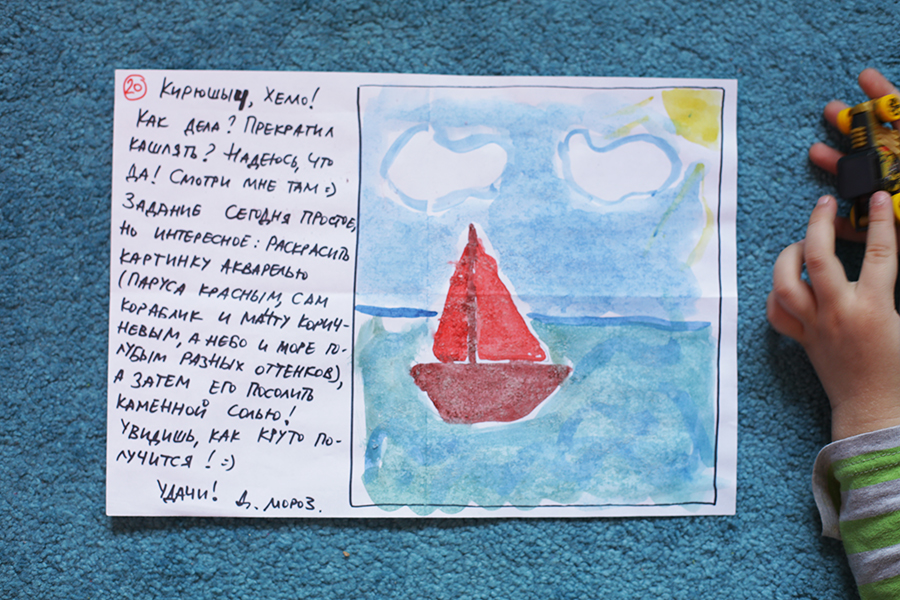 20 Кирюшыч, хемо!
Как дела? Прекратил
кашлять? Надеюсь, что
да! Смотри мне там =)
Задание сегодня простое,
но интересное: раскрасить
картинку акварелью
(паруса красным, сам
кораблик и мачту корич-
невым, а небо и море го-
лубым разных оттенков),
а затем его посолить
каменной солью!
Увидишь, как круто по-
лучится! =)
Удачи! Д. Мороз.